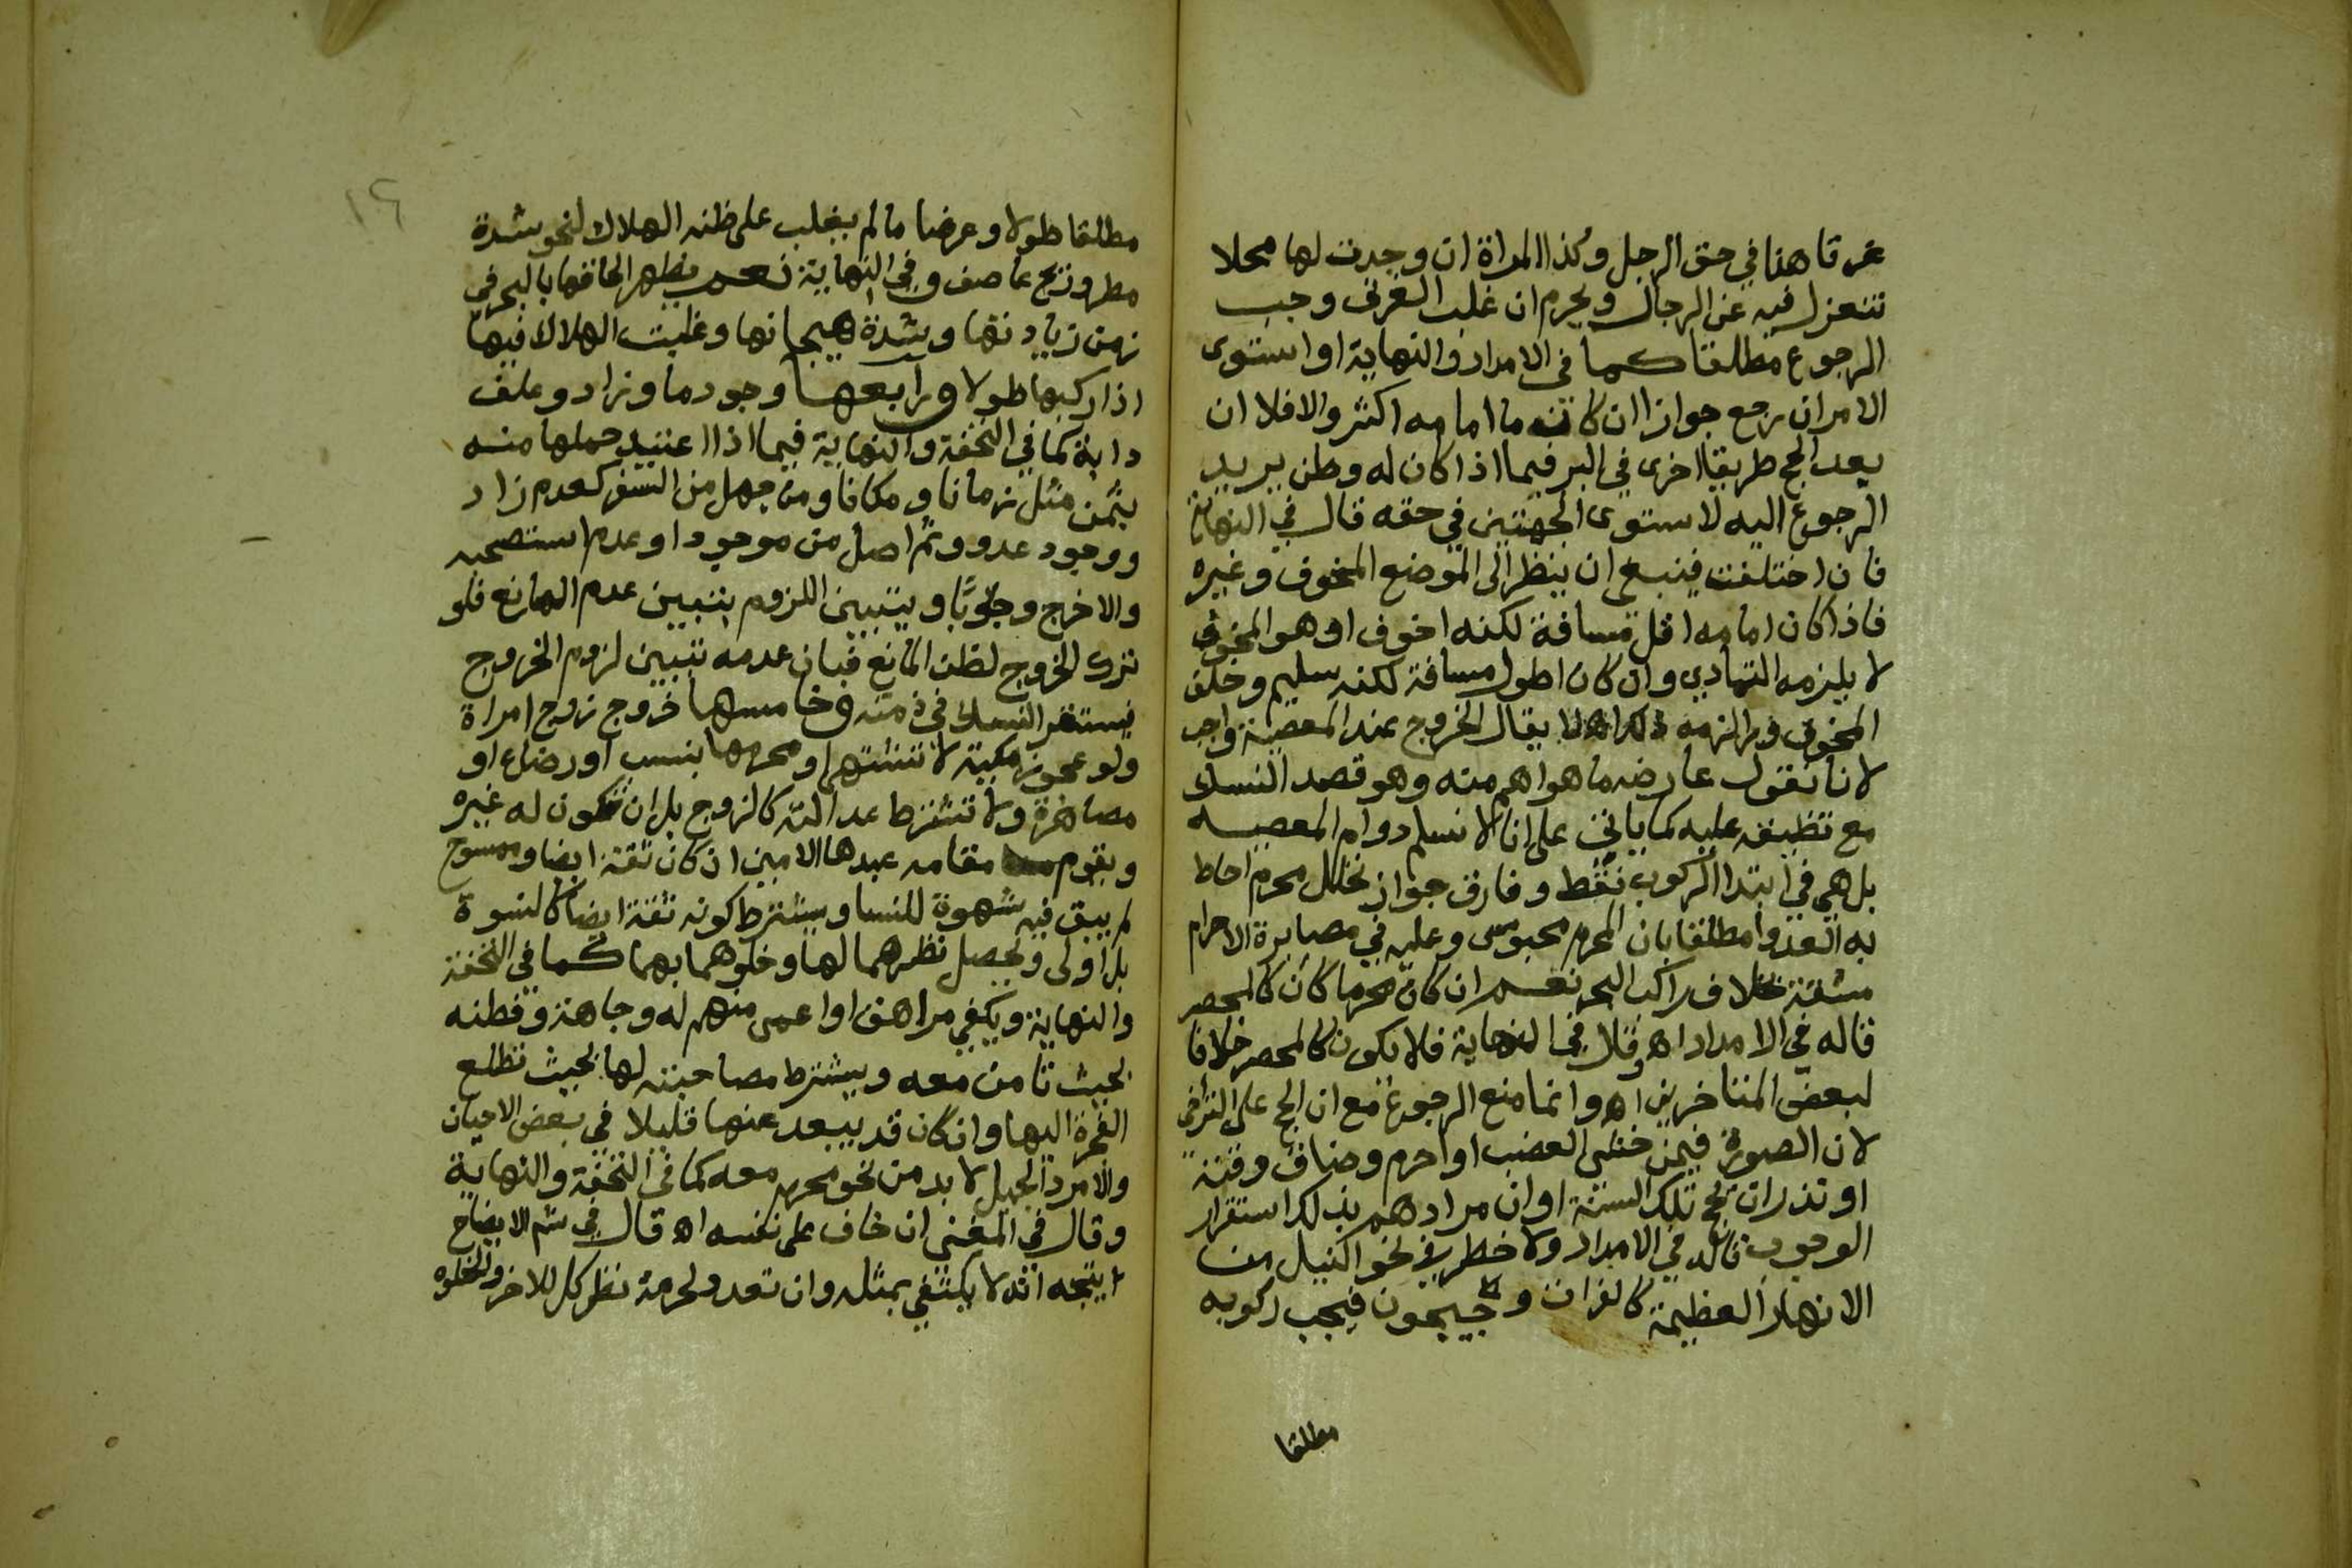 عرفا هنا في حق الرجل وكذا المراة ان وجدت لها محلا
تنعزل فيه عن الرجال ويحرم ان غلب الغرق وجب
الرجوع مطلقا كما في الامداد والنهاية او استوى
الامران رجع جوازا ان كان ما امامه اكثر والا فلا ان
بعد الحج طريقا اخرى في البر فيما اذا كان له وطن يريد
الرجوع اليه لاستوى الجهتين في حقه قال في النهاية
فان اختلفت فينبغي ان ينظر الى الموضع المخوف وغيره
فاذا كان امامه اقل مسافة لكنه اخوف او هو المخوف
لا يلزمه التمادي وان كان اطول مسافة لكنه سليم وخلف
المخوف وراه لزمه ذلك اه لا يقال الخروج عند المعصية واجب
لانا نقول عارضه ما هو اهم منه وهو قصد النسك
مع تضيقه عليه كما ياتي على انا لا نسلم دوام المعصيه
بل هي في ابتدا الركوب فقط وفارق جواز تحلل محرم احاط
به العدوا مطلقا بان المحرم محبوس وعليه في مصابرة الاحرام
مشقة خلاف راكب البحر نعم ان كان محرما كان كالمحصر
قاله في الامداد اه وقال في النهاية فلا يكون كالمحصر خلافا
لبعض المتاخرين اه وانما منع الرجوع مع ان الحج على التراخي
لان الصورة فيمن خشى العضب او احرم وضاق وقته
او نذر ان يحج تلك السنة او ان مرادهم بذلك استقرار
الوجوب قاله في الامداد ولا خطر في نحو النيل من
الانهار العظيمة كالفرات وجيحون فيجب ركوبه
مطلقا
١٦
مطلقا طولا وعرضا ما لم يغلب على ظنه الهلاك لنحو شدة
مطر وريح عاصف وفي النهاية نعم يظهر الحاقها بالبحر في
زمن زيادتها وشدة هيجانها وغلبت الهلاك فيها
اذا ركبها طولا ورابعها وجود ما وزاد وعلف
دابة كما في التحفة والنهاية فيما اذا اعتيد حملها منه
بثمن مثل زمانا ومكانا ومن جهل من السفر كعدم زاد
ووجود عدو وثم اصل من موجود او عدم استصحبه
والا خرج وجوبا ويتبين اللزوم بتبين عدم المانع فلو
ترك الخروج لظن المانع فبان عدمه تبين لزوم الخروج
فيستقر النسك في ذمته وخامسها خروج زوج امراة
ولو عجوزا مكية لا تشتهي او محرمها بنسب او رضاع او
مصاهرة ولا تشترط عدالته كالزوج بل ان تكون له غيره
ويقوم مقامه عبدها الامين ان كان ثقة ايضا وممسوح
لم يبق فيه شهوة للنسا ويشترط كونه ثقة ايضا كالنسوة
بل اولى ويحصل نظرهما لها وخلوهما بهما كما في التحفة
والنهاية ويكفي مراهق او اعمى منهم له وجاهة وفطنه
بحيث تامن معه ويشترط مصاحبته لها بحيث تطلع
الفجرة اليها وان كان قد يبعد عنها قليلا في بعض الاحيان
والامرد الجميل لا بد من نحو محرم معه كما في التحفة والنهاية
وقال في المغني ان خاف على نفسه اه قال في شم الايضاح
ا يتجه انه لا يكتفي بمثله وان تعدد لحرمة نظر كل للاخر والخلوه